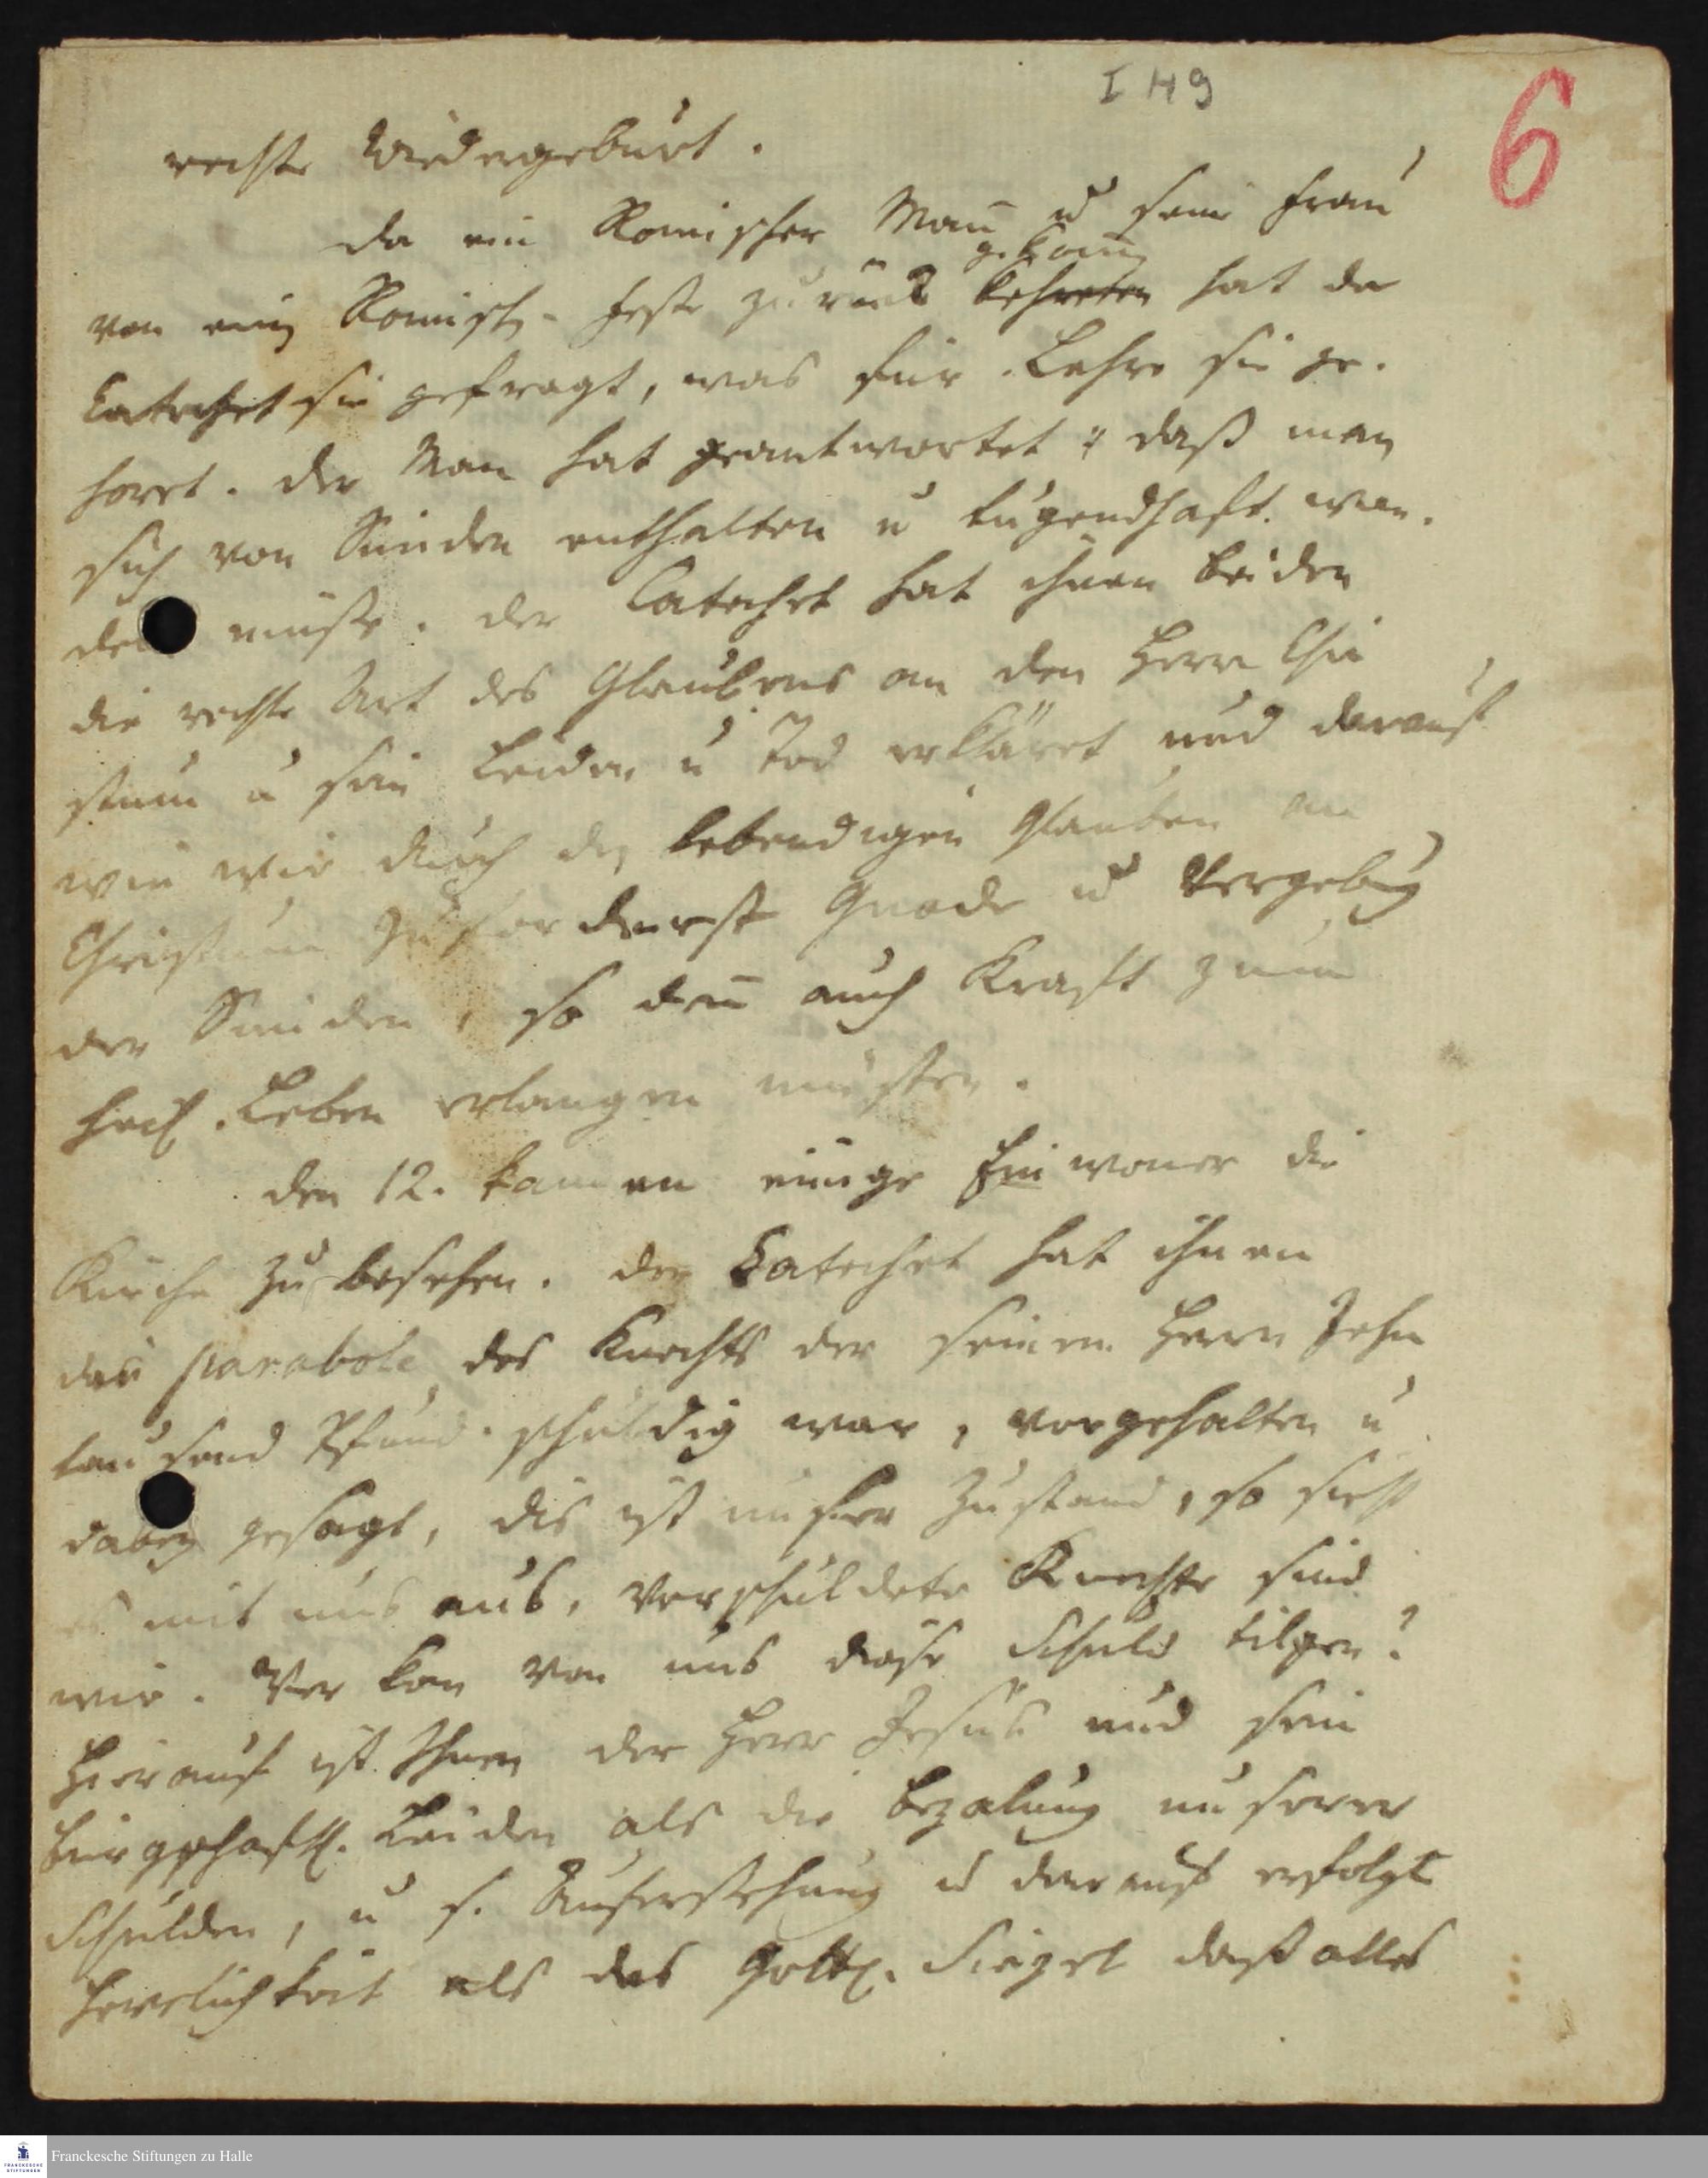 I H 9
6
rechte Wiedergeburt.
Da ein Romischer Man̄ u seine Frau
gekom̄en
von eing Romisch- Feste zurück kehreten hat der
Catechet sie gefragt, was für Lehre sie ge-
höret. Der Man hat geantwortet: daß man
sich von Sünden enthalten u tugendhaft wan-
deln müsse. Der Catechet hat ihnen beiden
die rechte Art des Glaubens an den Herrn Chri
stum u sein Leiden u Tod erkläret und darauf
wie wir durch den lebendigen Glauben an
Christum zuforderst Gnade u Vergebung
der Sünden, so den̄ auch Kraft zum
heil. Leben erlangen müsten.
Den 12. kamen einige Einwoner die
Kirche zu besehen. Der Catechet hat ihnen
die parabole des Knechts der seinem Herrn Zehn
tausend Pfund schuldig war, vorgehalten u
dabey gesagt, dis ist unser Zustand, so sieht
es mit uns aus, verschuldete Knechte sind
wir. Wer kan von uns diese Schuld tilgen?
Hierauf ist Ihnen der Herr Jesus und sein
bürgschaftl. Leiden als die Bezalung unserer
Schulden, u s. Auferstehung u darauf erfolgte
Herrlichkeit als das Göttl. Siegel daß alles
Franckesche Stiftungen zu Halle
FRANCKESCHE
STIFTUNGEN